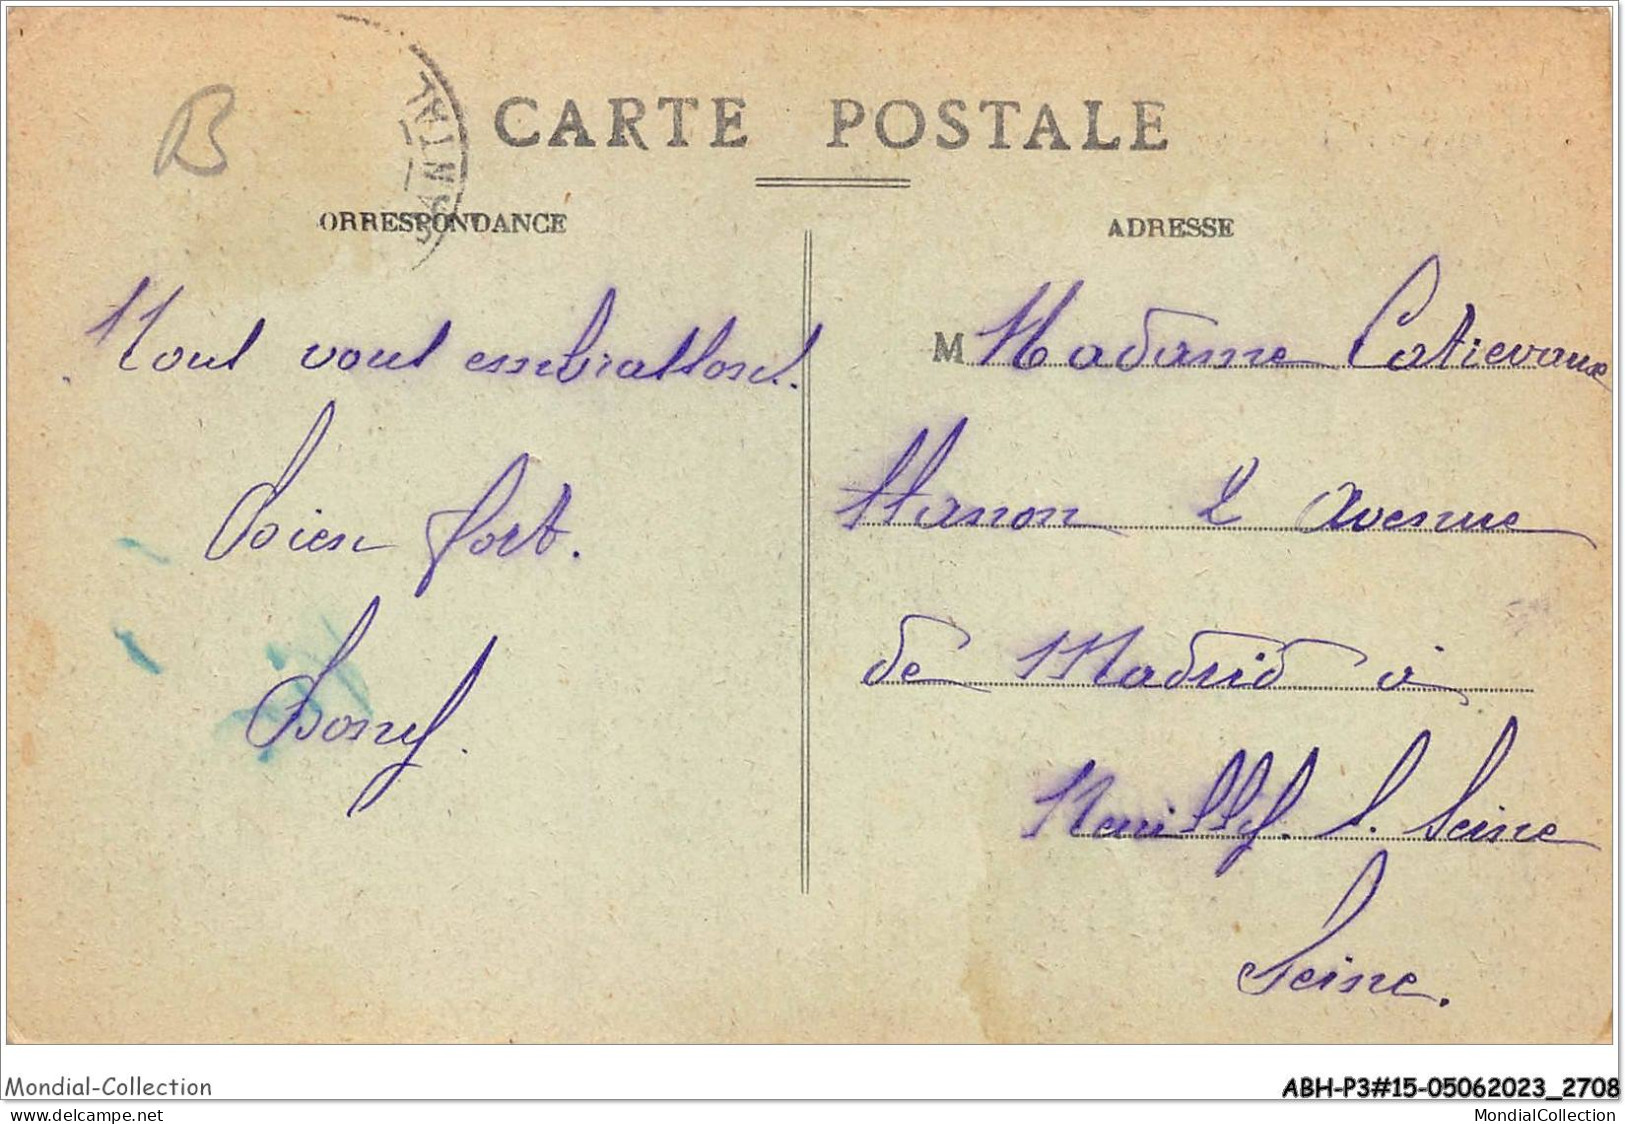 B
CARTE POSTALE
ORRESPONDANCE
ADRESSE
Nous vous embrassons
bien fort.
M Madame Catrevaux
Manon 2 Avenue
de Madrid à
Neuilly. s. Seine
Seine.
Mondial-Collection
ABH-P3#15-05062023_2708
www.delcampe.net
MondialCollection